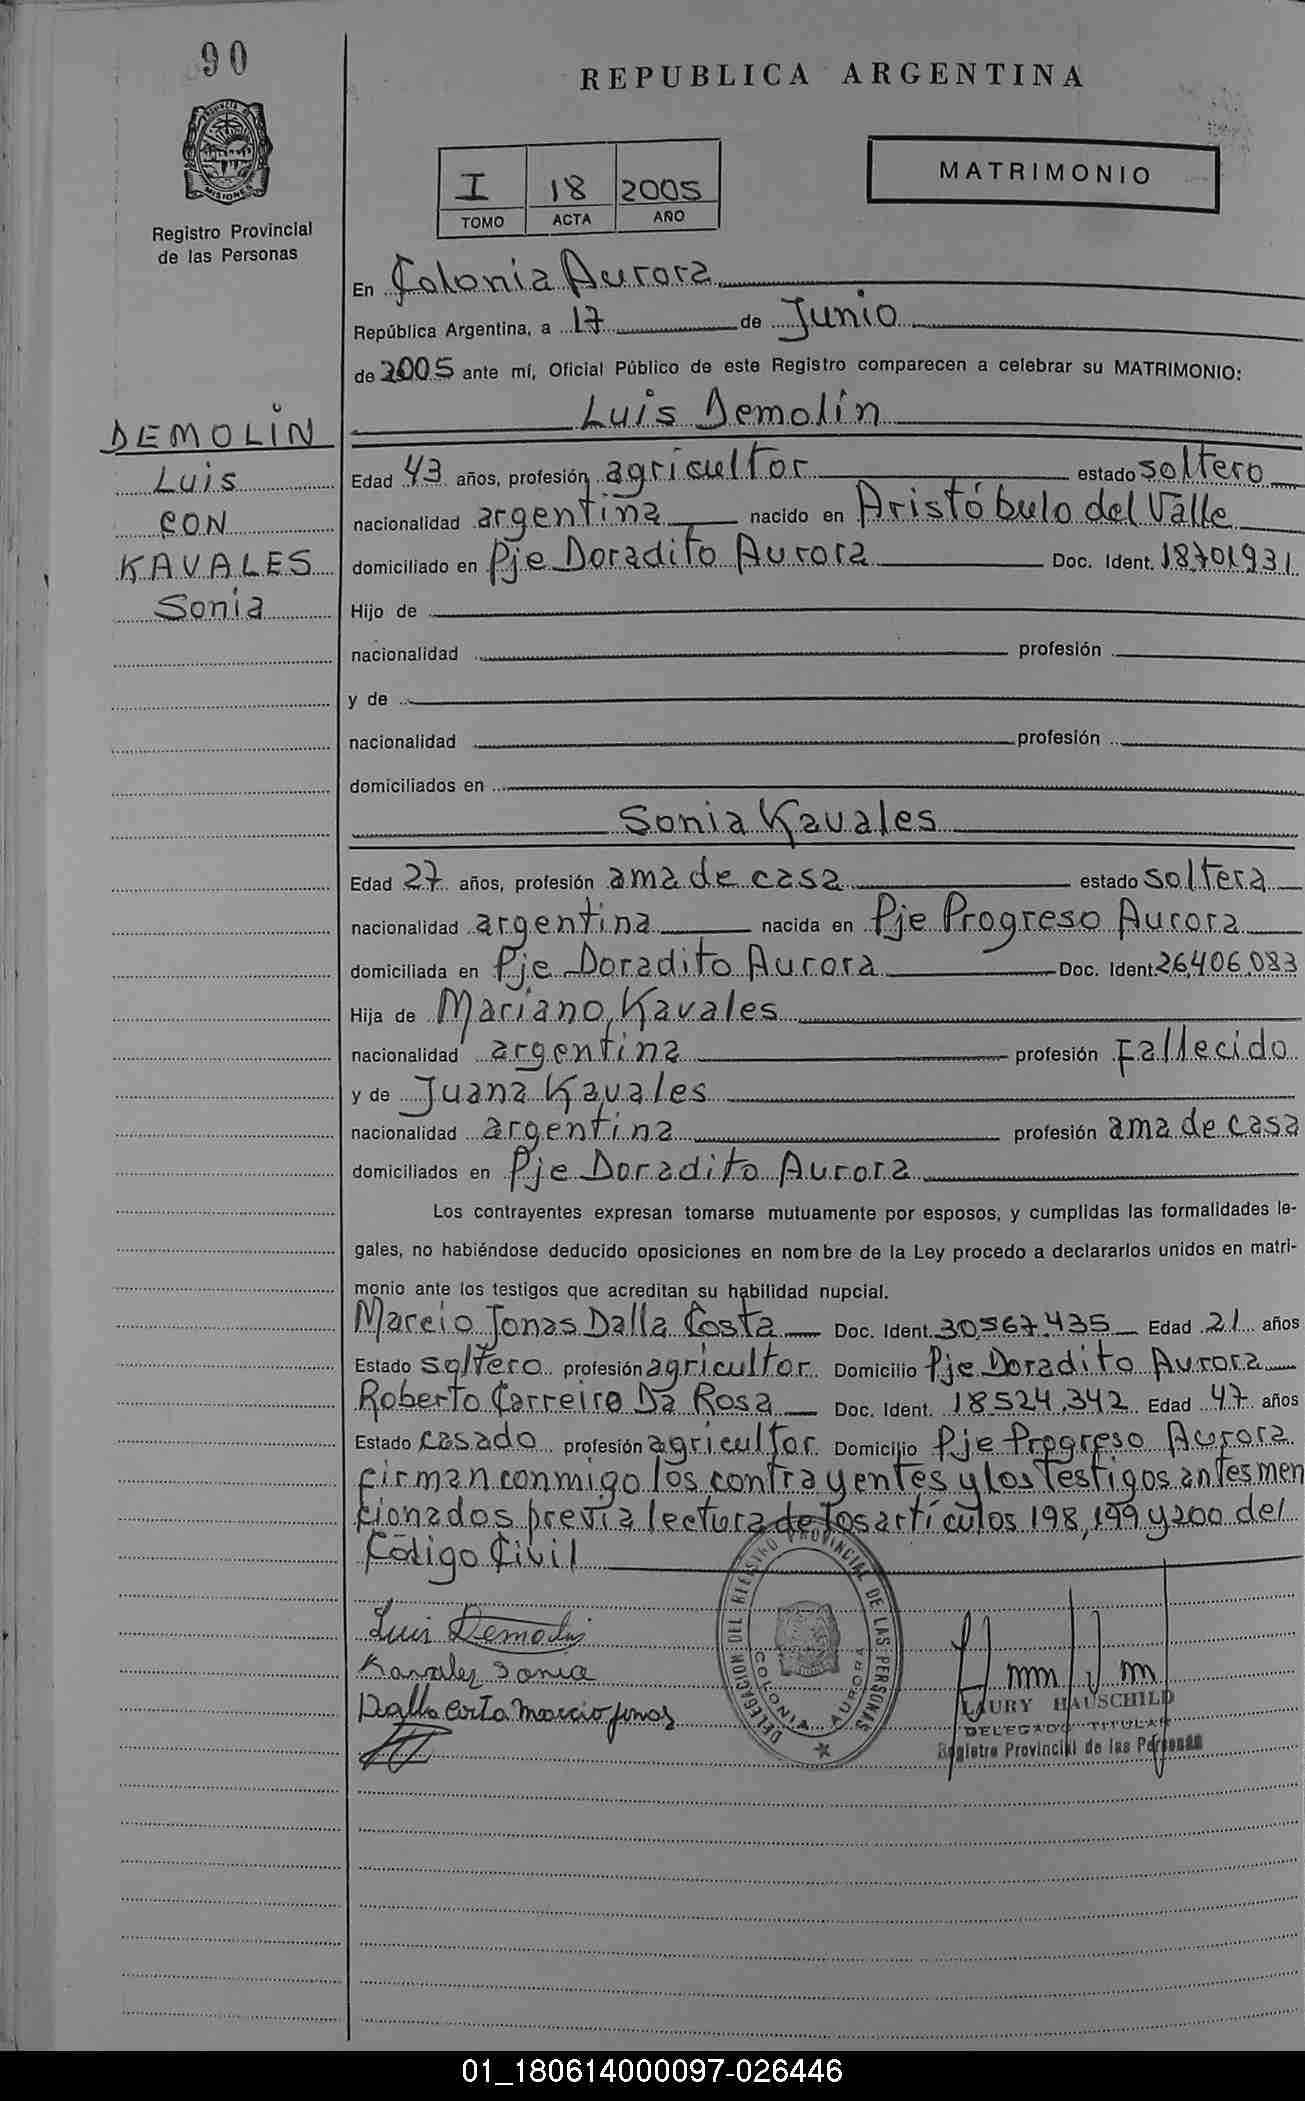 90
REPUBLICA ARGENTINA
PROVINCIA DE
MISIONES
Registro Provincial
de las Personas
I 18 2005
TOMO ACTA AÑO
MATRIMONIO
En Colonia Aurora
República Argentina, a 17 de Junio
de 2005 ante mí, Oficial Público de este Registro comparecen a celebrar su MATRIMONIO:
DEMOLIN
Luis
CON
KAVALES
Sonia
Luis Demolín
Edad 43 años, profesión agricultor estado soltero
nacionalidad argentina nacido en Aristóbulo del Valle
domiciliado en Pje Doradito Aurora Doc. Ident. 18.701.931
Hijo de
nacionalidad profesión
y de
nacionalidad profesión
domiciliados en
Sonia Kavales
Edad 27 años, profesión ama de casa estado soltera
nacionalidad argentina nacida en Pje Progreso Aurora
domiciliada en Pje Doradito Aurora Doc. Ident. 26.406.083
Hija de Mariano Kavales
nacionalidad argentina profesión Fallecido
y de Juana Kavales
nacionalidad argentina profesión ama de casa
domiciliados en Pje Doradito Aurora
Los contrayentes expresan tomarse mutuamente por esposos, y cumplidas las formalidades le-
gales, no habiéndose deducido oposiciones en nombre de la Ley procedo a declararlos unidos en matri-
monio ante los testigos que acreditan su habilidad nupcial.
Marcio Jonas Dalla Costa Doc. Ident. 30.567.435 Edad 21 años
Estado soltero profesión agricultor Domicilio Pje Doradito Aurora
Roberto Carreiro Da Rosa Doc. Ident. 18.524.342 Edad 47 años
Estado casado profesión agricultor Domicilio Pje Progreso Aurora
firman conmigo los contrayentes y los testigos antes men
cionados previa lectura de los artículos 198, 199 y 200 del
Código Civil
Luis Demolin
Kavales Sonia
Dalla Costa Marcio Jonas
DELEGACION DEL REGISTRO PROVINCIAL DE LAS PERSONAS
COLONIA AURORA
LAURY HAUSCHILD
DELEGADO TITULAR
Registro Provincial de las Personas
01_180614000097-026446